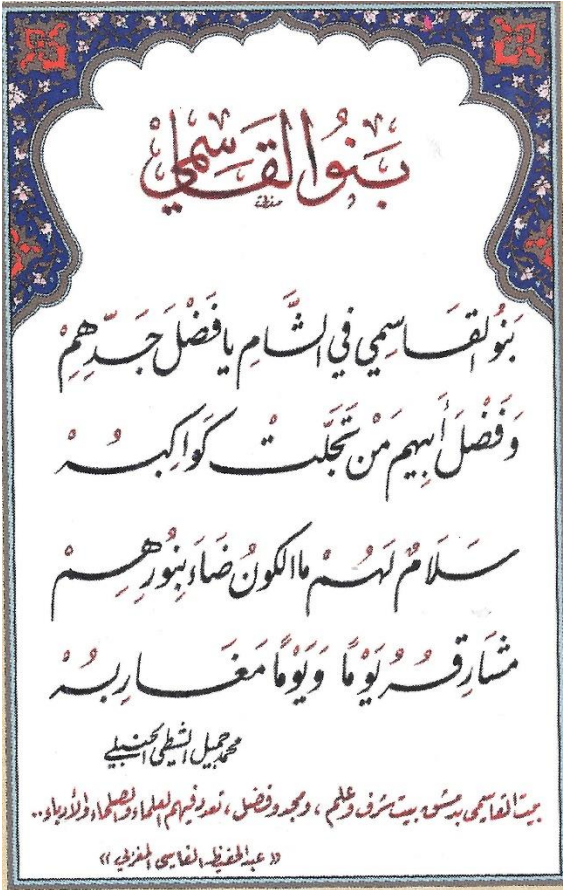 بَنُو القَاسِمِي
بَنُو القَاسِمِي في الشَّامِ يا فَضْلَ جَدِّهِمْ
وَفَضْلَ أَبِيهِم مَنْ تَجَلَّتْ كَوَاكِبُهْ
سَلَامٌ لَهُمْ ما الكونُ ضَاءَ بِنُورِهِمْ
مشَارِقُهُ يَوْمًا وَيَوْمًا مَغَارِبُهْ
محمد جميل الشطي الحنبلي
بيت القاسمي بدمشق بيت شرف وعلم ، ومجد وفضل ، تعدد فيهم العلماء والصلحاء والأدباء..
« عبد الحفيظ الفاسي المغربي »